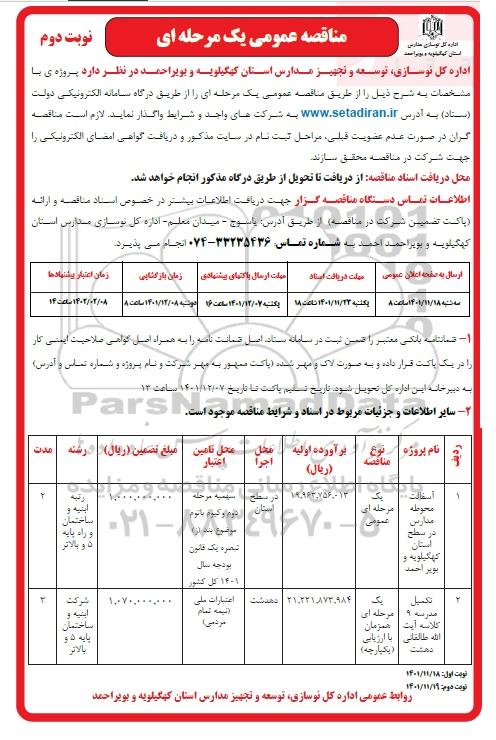 اداره کل نوسازی مدارس
استان کهگیلویه و بویراحمد
مناقصه عمومی یک مرحله ای
نوبت دوم
اداره کل نوسازی، توسعه و تجهیز مدارس استان کهگیلویه و بویراحمد در نظر دارد پروژه ی با
مشخصات به شرح ذیل را از طریق مناقصه عمومی یک مرحله ای را از طریق درگاه سامانه الکترونیکی دولت
(ستاد) به آدرس www.setadiran.ir به شرکت های واجد و شرایط واگذار نماید. لازم است مناقصه
گران در صورت عدم عضویت قبلی، مراحل ثبت نام در سایت مذکور و دریافت گواهی امضای الکترونیکی را
جهت شرکت در مناقصه محقق سازند.
محل دریافت اسناد مناقصه: از دریافت تا تحویل از طریق درگاه مذکور انجام خواهد شد.
اطلاعات تماس دستگاه مناقصه گزار جهت دریافت اطلاعات بیشتر در خصوص اسناد مناقصه و ارائه
(پاکت تضمین شرکت در مناقصه) از طریق آدرس: یاسوج - میدان معلم- اداره کل نوسازی مدارس استان
کهگیلویه و بویراحمد احمد به شماره تماس: ۳۳۲۳۵۴۳۶-۰۷۴ انجام می پذیرد.
ارسال به صفحه اعلان عمومی مهلت دریافت اسناد مهلت ارسال پاکتهای پیشنهادی زمان بازگشایی زمان اعتبار پیشنهادها
سه شنبه ۱۴۰۱/۱۱/۱۸ ساعت ۸ یکشنبه ۱۴۰۱/۱۱/۲۳ ساعت ۱۸ یکشنبه ۱۴۰۱/۱۲/۰۷ ساعت ۱۶ دوشنبه ۱۴۰۱/۱۲/۰۸ ساعت ۸ ۱۴۰۲/۰۲/۰۸ ساعت ۱۴
۱- ضمانتنامه بانکی معتبر را ضمن ثبت در سامانه ستاد، اصل ضمانت نامه را به همراه اصل گواهی صلاحیت ایمنی کار
را در یک پاکت قرار داده و به صورت لاک و مهر شده (پاکت ممهور به مهر شرکت و نام پروژه و شماره تماس و آدرس)
به دبیرخانه این اداره کل تحویل شود. تاریخ تسلیم پاکت تا تاریخ ۱۴۰۱/۱۲/۰۷ ساعت ۱۳
۲- سایر اطلاعات و جزئیات مربوط در اسناد و شرایط مناقصه موجود است.
ParsNamadData
پایگاه اطلاع رسانی مناقصه و مزایده
۰۲۱-۸۸۳۴۹۶۷۰-۵
ردیف نام پروژه نوع مناقصه برآورده اولیه (ریال) محل اجرا محل تامین اعتبار مبلغ تضمین (ریال) رشته مدت
۱ آسفالت محوطه مدارس در سطح استان کهگیلویه و بویر احمد یک مرحله ای عمومی ۱۹.۹۶۳.۷۵۶.۰۱۳ در سطح استان سهمیه مرحله دوم وکیوم باتوم موضوع بند (ز) تبصره یک قانون بودجه سال ۱۴۰۱ کل کشور ۱.۰۰۰.۰۰۰.۰۰۰ رتبه ابنیه و ساختمان و راه پایه ۵ و بالاتر ۲
۲ تکمیل مدرسه ۹ کلاسه آیت الله طالقانی دهشت یک مرحله ای همزمان با ارزیابی (یکپارچه) ۲۱.۲۲۱.۸۷۳.۹۸۴ دهدشت اعتبارات ملی (نیمه تمام مردمی) ۱.۰۷۰.۰۰۰.۰۰۰ شرکت ابنیه و ساختمان پایه ۵ و بالاتر ۳
نوبت اول: ۱۴۰۱/۱۱/۱۸
نوبت دوم: ۱۴۰۱/۱۱/۱۹
روابط عمومی اداره کل نوسازی، توسعه و تجهیز مدارس استان کهگیلویه و بویراحمد